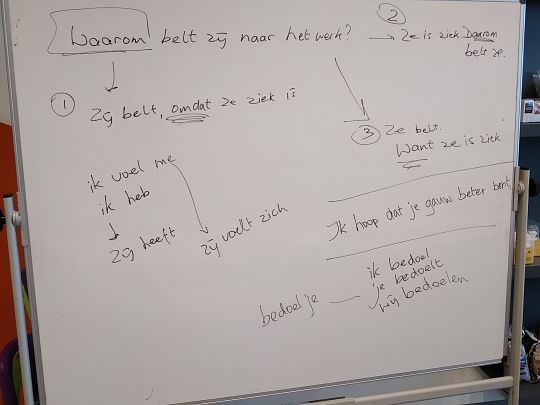 Waarom belt zij naar het werk?
② → Ze is ziek. Daarom
belt ze.
① Zij belt, omdat ze ziek is
③ Ze belt.
Want ze is ziek
ik voel me
ik heb
↓
Zij heeft
zij voelt zich
Ik hoop dat je gauw beter bent,
bedoel je — ik bedoel
je bedoelt
wij bedoelen